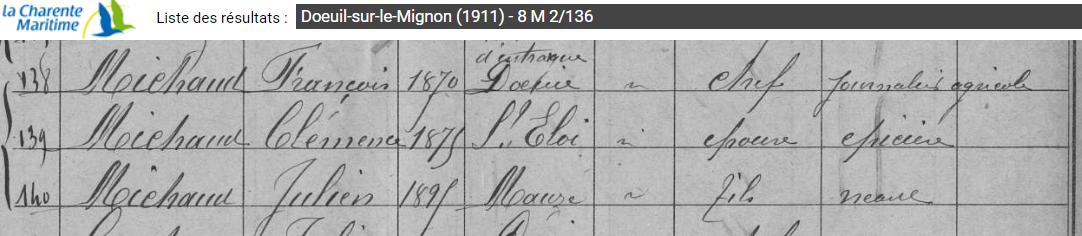 la Charente
Maritime
Liste des résultats : Doeuil-sur-le-Mignon (1911) - 8 M 2/136
138 Michaud François 1870 Doeuil " chef journalier agricole
139 Michaud Clémence 1875 St Eloi " épouse épicière
140 Michaud Julien 1895 Mauzé " fils neant